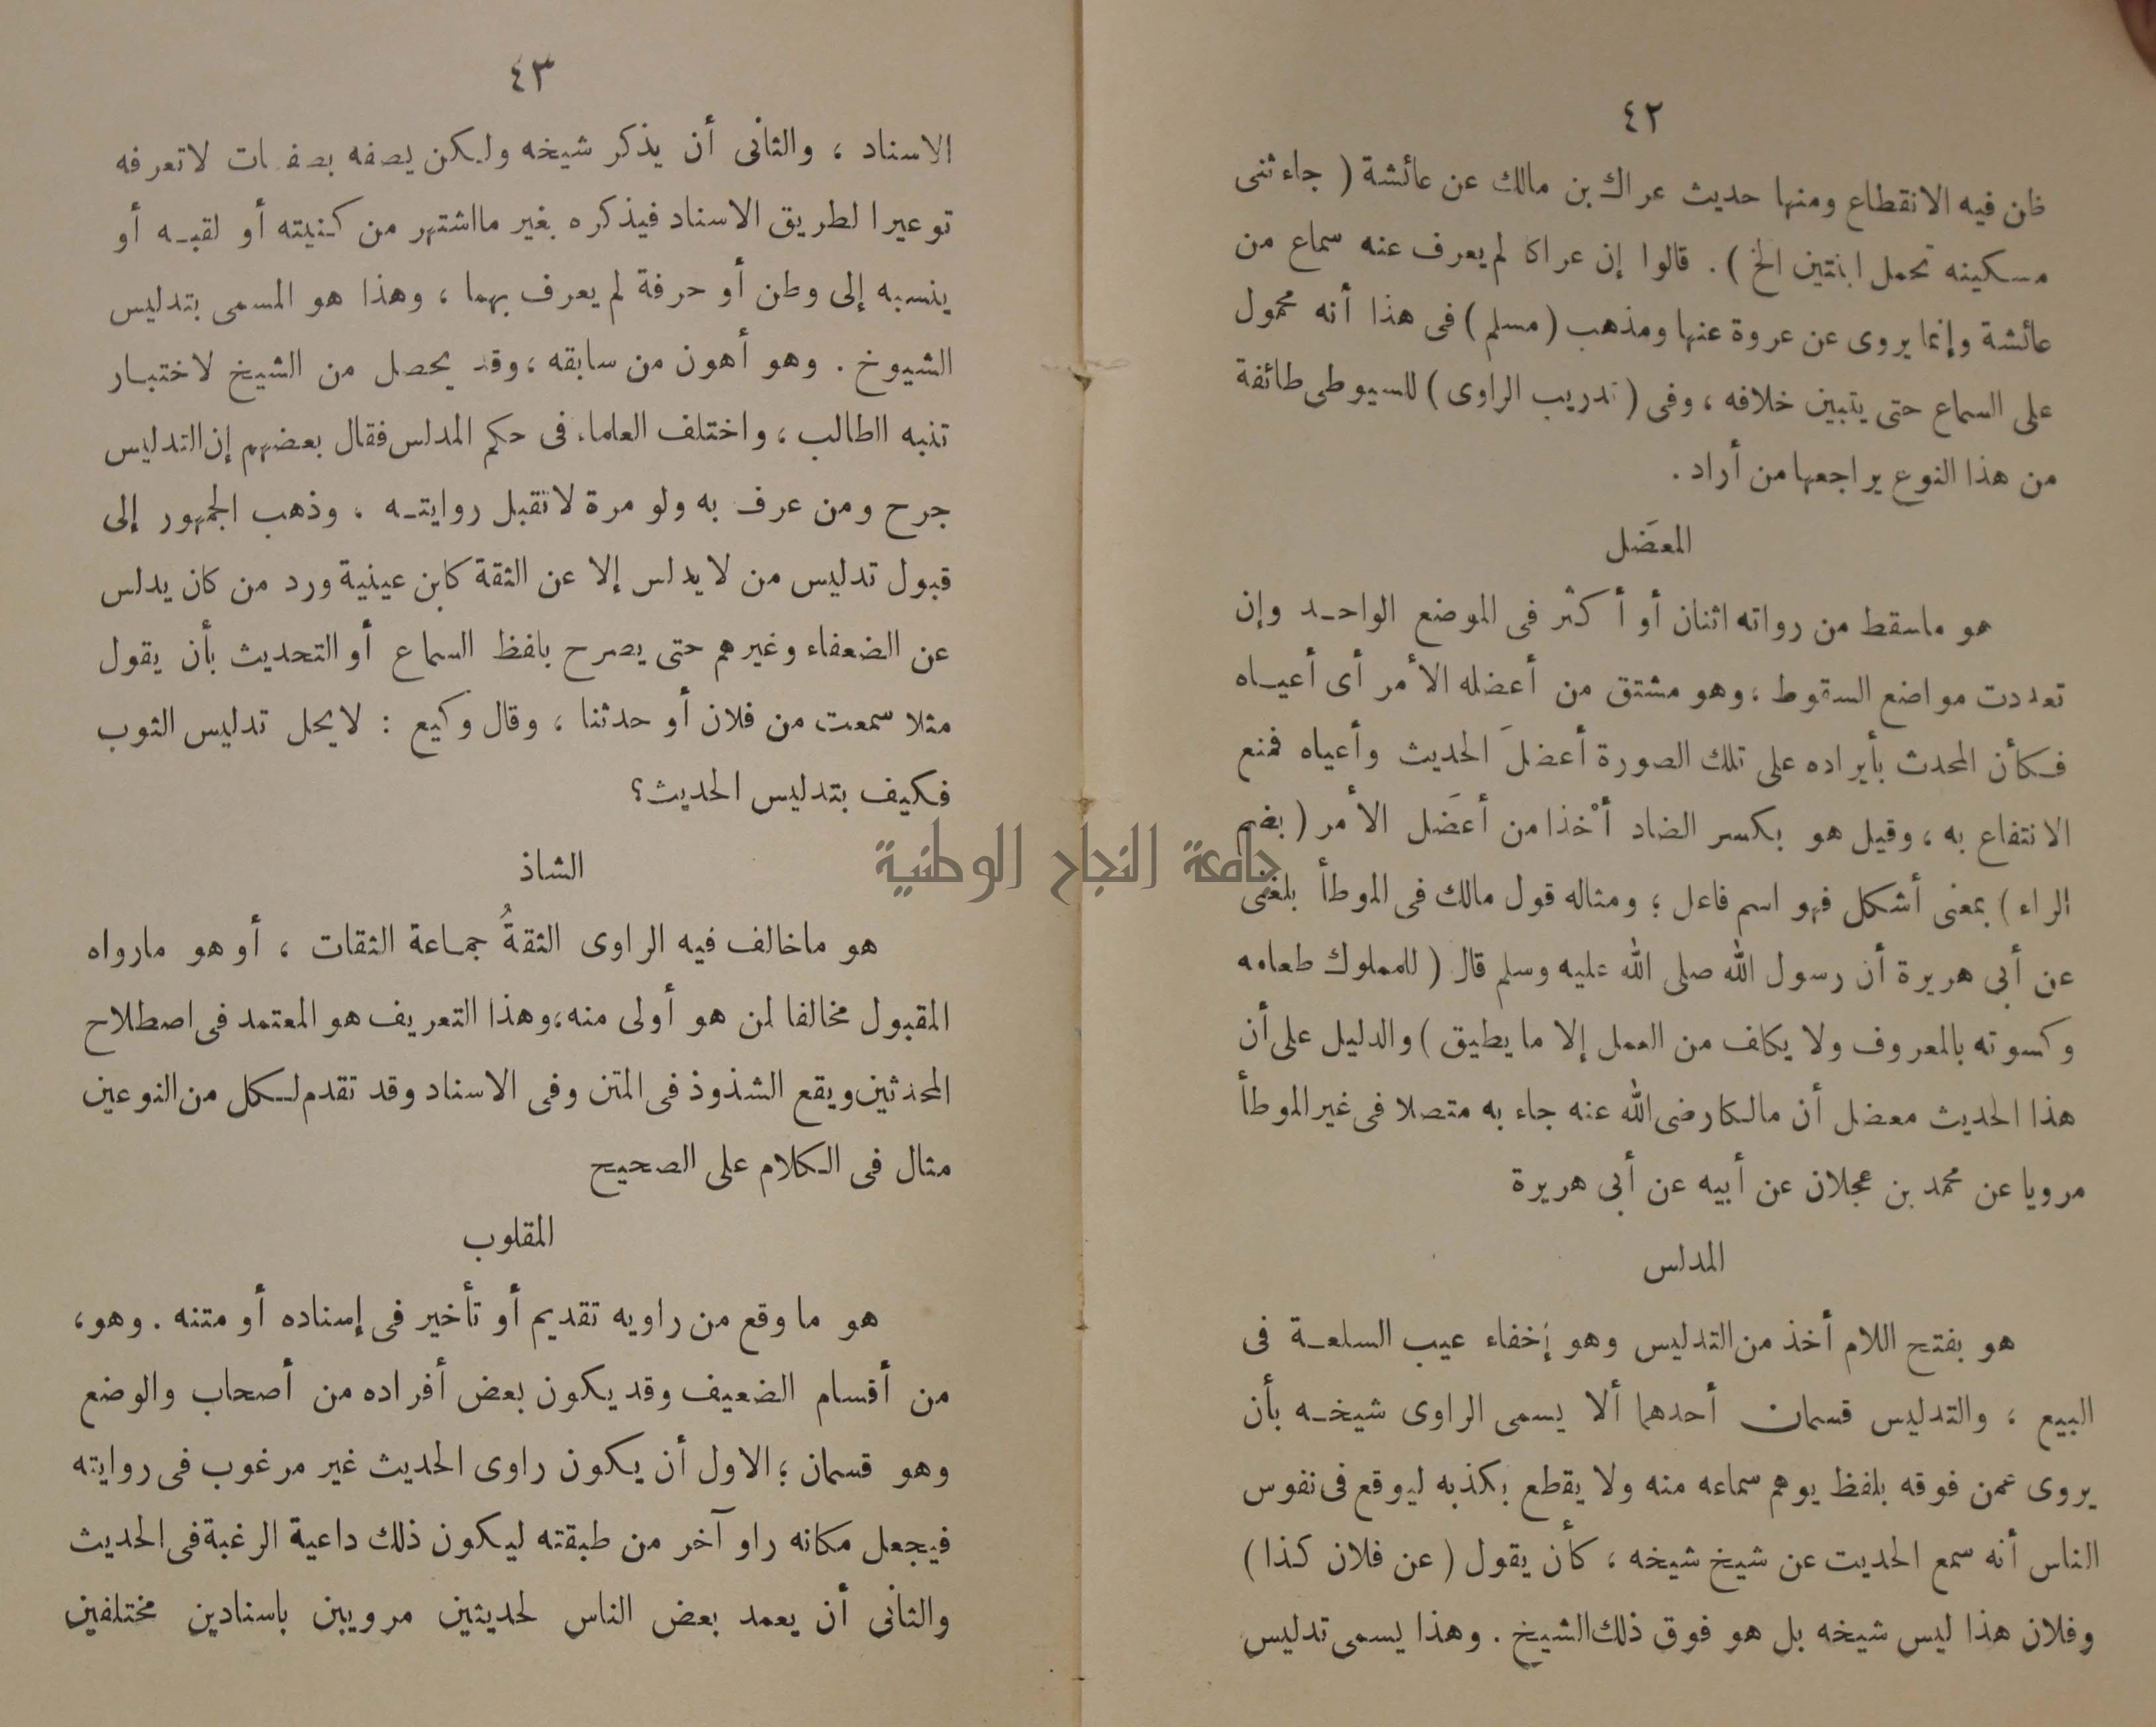 ٤٢
ظن فيه الانقطاع ومنها حديث عراك بن مالك عن عائشة ( جاءتنى
مسكينه تحمل ابنتين الخ ) . قالوا إن عراكا لم يعرف عنه سماع من
عائشة وإنما يروى عن عروة عنها ومذهب ( مسلم ) فى هذا أنه محمول
على السماع حتى يتبين خلافه ، وفى ( تدريب الراوى ) للسيوطى طائفة
من هذا النوع يراجعها من أراد .
المعضَل
هو ماسقط من رواته اثنان أو أكثر فى الموضع الواحد وإن
تعددت مواضع السقوط ، وهو مشتق من أعضله الأمر أى أعياه
فكأن المحدث بأيراده على تلك الصورة أعضلَ الحديث وأعياه فمنع
الانتفاع به ، وقيل هو بكسر الضاد أخْذا من أعضَل الأمر ( بضم
الراء ) بمعنى أشكل فهو اسم فاعل ؛ ومثاله قول مالك فى الموطأ بلغنى
عن أبى هريرة أن رسول الله صلى الله عليه وسلم قال ( للمملوك طعامه
وكسوته بالمعروف ولا يكلف من العمل إلا ما يطيق ) والدليل على أن
هذا الحديث معضل أن مالكا رضى الله عنه جاء به متصلا فى غير الموطأ
مرويا عن محمد بن عجلان عن أبيه عن أبى هريرة
المدلس
هو بفتح اللام أخذ من التدليس وهو إخفاء عيب السلعة فى
البيع ، والتدليس قسمان أحدهما ألا يسمى الراوى شيخه بأن
يروى عمن فوقه بلفظ يوهم سماعه منه ولا يقطع بكذبه ليوقع فى نفوس
الناس أنه سمع الحديث عن شيخ شيخه ، كأن يقول ( عن فلان كذا )
وفلان هذا ليس شيخه بل هو فوق ذلك الشيخ . وهذا يسمى تدليس
٤٣
الاسناد ، والثانى أن يذكر شيخه ولكن يصفه بصفات لاتعرفه
توعيرا لطريق الاسناد فيذكره بغير مااشتهر من كنيته أو لقبه أو
ينسبه إلى وطن أو حرفة لم يعرف بهما ، وهذا هو المسمى بتدليس
الشيوخ . وهو أهون من سابقه ، وقد يحصل من الشيخ لاختبار
تنبه الطالب ، واختلف العلماء فى حكم المدلس فقال بعضهم إن التدليس
جرح ومن عرف به ولو مرة لاتقبل روايته . وذهب الجمهور إلى
قبول تدليس من لايدلس إلا عن الثقة كابن عيينية ورد من كان يدلس
عن الضعفاء وغيرهم حتى يصرح بلفظ السماع أو التحديث بأن يقول
مثلا سمعت من فلان أو حدثنا ، وقال وكيع : لايحل تدليس الثوب
فكيف بتدليس الحديث؟
الشاذ
هو ماخالف فيه الراوى الثقةُ جماعة الثقات ، أو هو مارواه
المقبول مخالفا لمن هو أولى منه ، وهذا التعريف هو المعتمد فى اصطلاح
المحدثين ويقع الشذوذ فى المتن وفى الاسناد وقد تقدم لكل من النوعين
مثال فى الكلام على الصحيح
المقلوب
هو ما وقع من راويه تقديم أو تأخير فى إسناده أو متنه . وهو،
من أقسام الضعيف وقد يكون بعض أفراده من أصحاب والوضع
وهو قسمان ؛ الاول أن يكون راوى الحديث غير مرغوب فى روايته
فيجعل مكانه راو آخر من طبقته ليكون ذلك داعية الرغبة فى الحديث
والثانى أن يعمد بعض الناس لحديثين مرويين باسنادين مختلفين
جامعة النجاح الوطنية